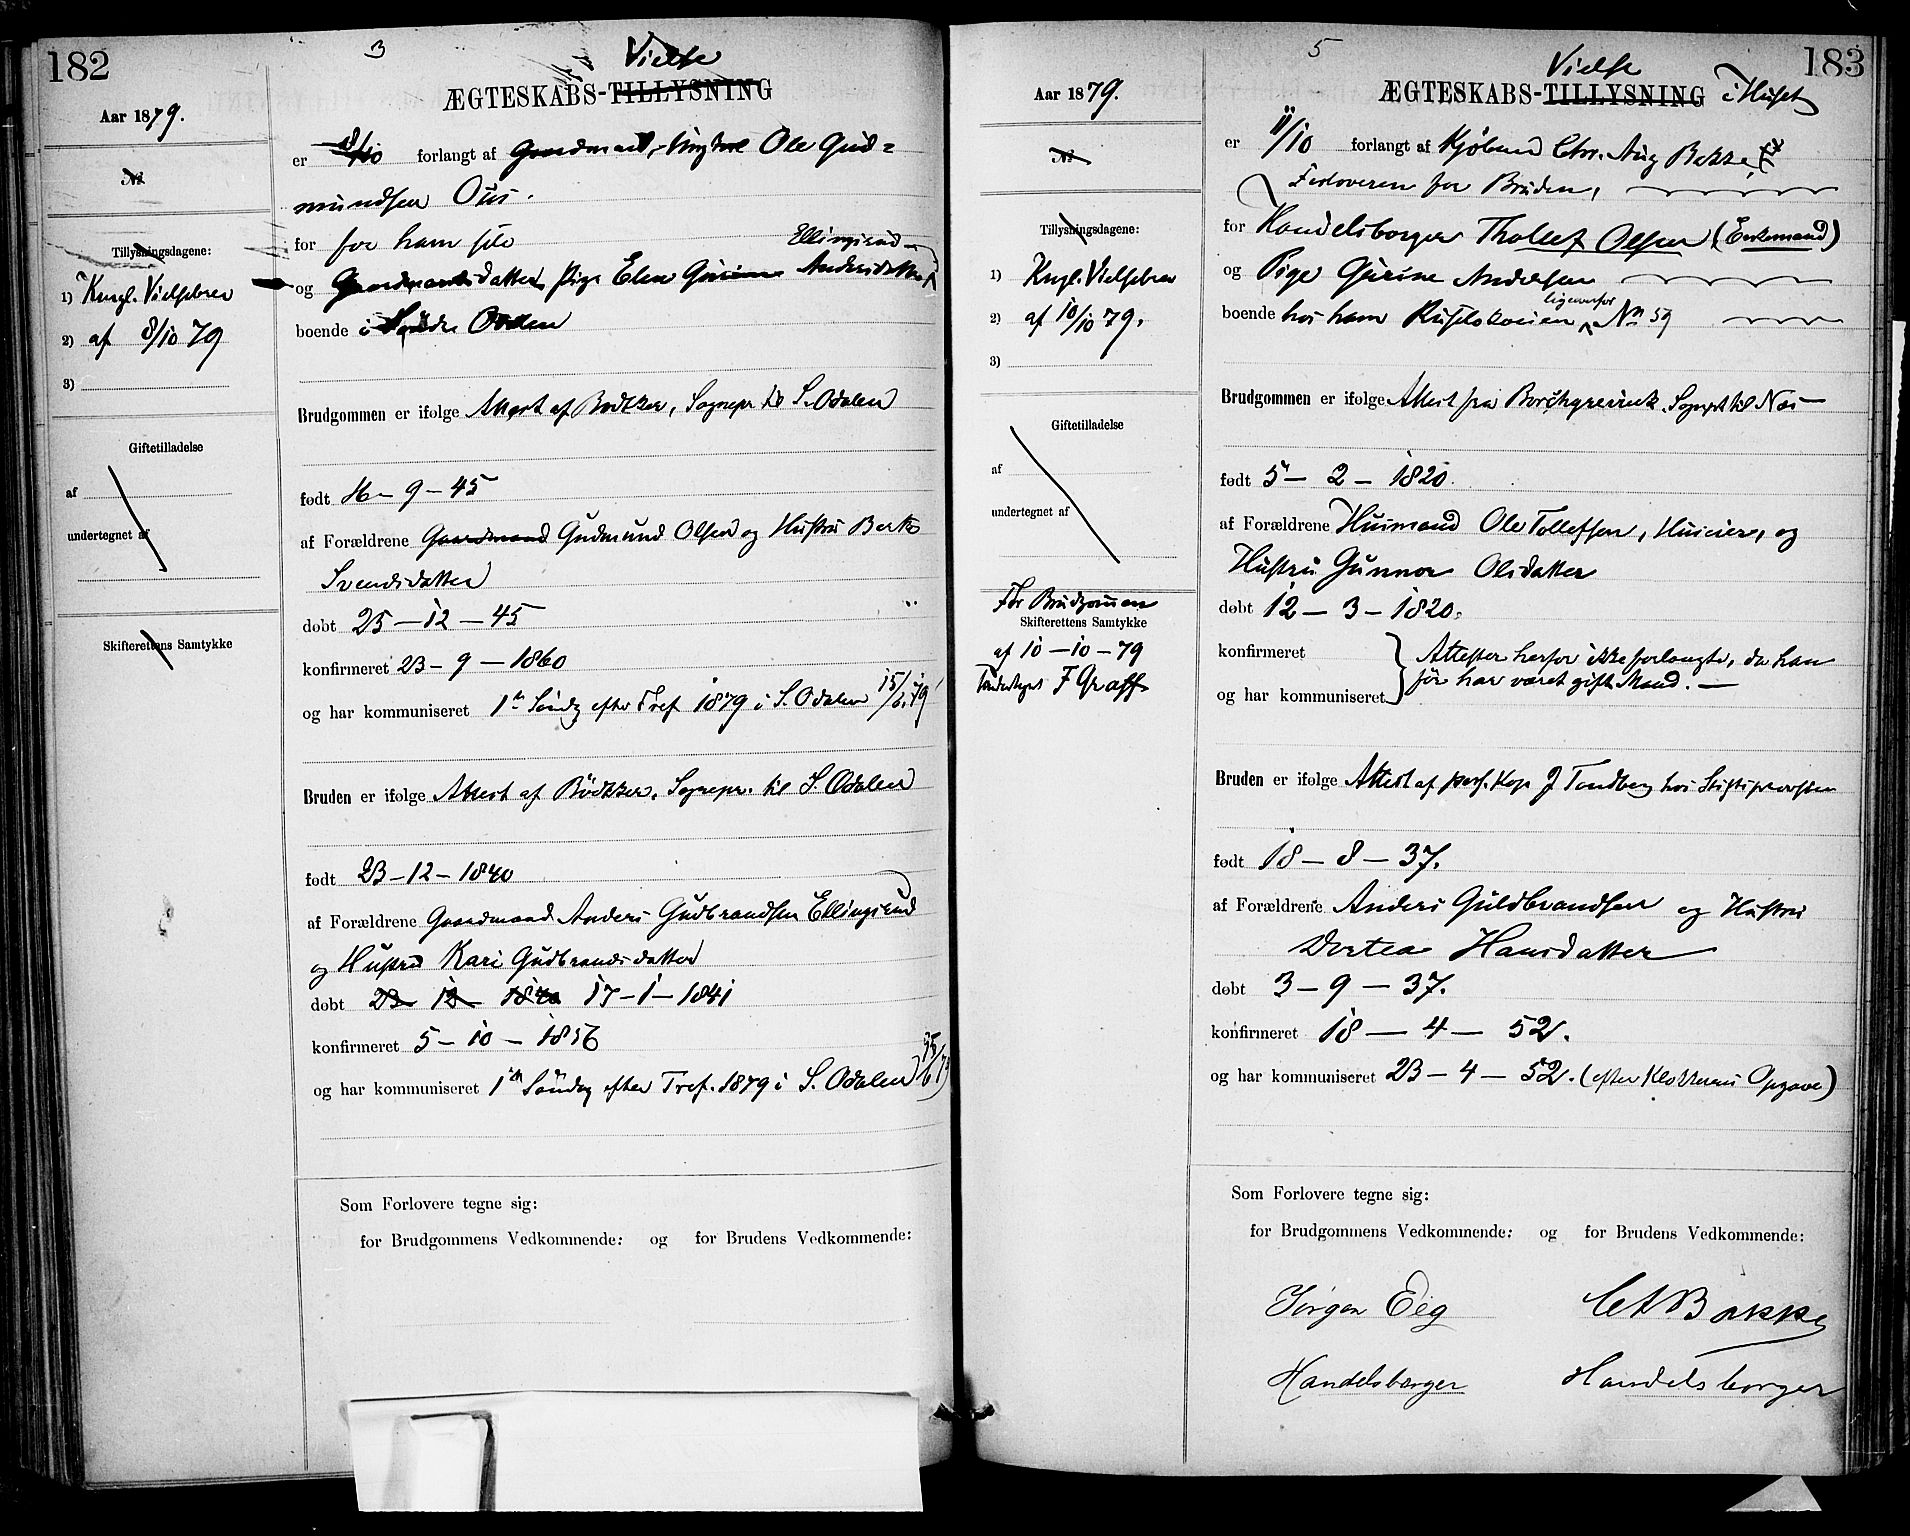 182
3
Vielse
ÆGTESKABS-TILLYSNING
Aar 1879.
No
er 8/10 forlangt af Gaardmand, Ole Gud=
mundsen Ous.
for for ham selv
Ellingsrud
og Gaardmandsdatter, Pige Elen Gurine Andersdatter
boende i Søndre Odalen
Tillysningsdagene:
1) Kngl. Vielsebrev
2) af 8/10 79
3)
Giftetilladelse
af
undertegnet af
Skifterettens Samtykke
Brudgommen er ifølge Attest af Bødkker, Sognepr. til S. Odalen
født 16 - 9 - 45
af Forældrene Gaardmand Gudmund Olsen og Hustru Berte
Svendsdatter
døbt 25 - 12 - 45
konfirmeret 23 - 9 - 1860
og har kommuniseret 1ste Søndg efter Tref 1879 i S. Odalen 15/6 79
Bruden er ifølge Attest af Bødkker, Sognepr. til S. Odalen
født 23 - 12 - 1840
af Forældrene Gaardmand Anders Gudbrandsen Ellingsrud
og Hustru Kari Gudbrandsdatter
døbt 23 12 1840 17 - 1 - 1841
konfirmeret 5 - 10 - 1856
og har kommuniseret 1ste Søndag efter Tref. 1879 i S. Odalen 15/6 79
Som Forlovere tegne sig:
for Brudgommens Vedkommende: og for Brudens Vedkommende:
183
5
Vielse
ÆGTESKABS-TILLYSNING i Huset
Aar 1879.
No
er 11/10 forlangt af Kjøbmd Chr. Aug Bakke,
Forloveren for Bruden,
for Handelsborger Thollef Olsen (Enkemand)
og Pige Gurine Andersen
boende hos ham ligeoverfor No 59
Tillysningsdagene:
1) Kngl. Vielsebrev
2) af 10/10 79.
3)
Giftetilladelse
af
undertegnet af
For Brudgommen
Skifterettens Samtykke
af 10 - 10 - 79
undertegnet F Graff
Brudgommen er ifølge Attest fra Borchgrevink Sognept til Næs
født 5 - 2 - 1820.
af Forældrene Husmand Ole Tollefsen, Huseier, og
Hustru Gunnor Olsdatter
døbt 12 - 3 - 1820.
konfirmeret
og har kommuniseret
Attester herfor ikke forlangte, da han
før har været gift Mand.
Bruden er ifølge Attest af pers. Kap J Tandberg hos Stiftsprovsten
født 18 - 8 - 37.
af Forældrene Anders Guldbrandsen og Hustru
Dortea Hansdatter
døbt 3 - 9 - 37.
konfirmeret 18 - 4 - 52.
og har kommuniseret 23 - 4 - 52. (efter Klokkerens Opgave)
Som Forlovere tegne sig:
for Brudgommens Vedkommende: og for Brudens Vedkommende:
Jørgen Eeg
CABakke
Handelsborger
Handelsborger